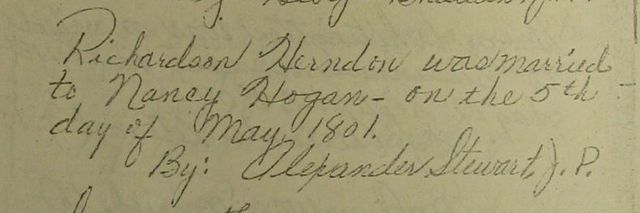 Richardson Herndon was married
to Nancy Hogan - on the 5th -
day of May, 1801.
By: Alexander Stewart, J. P.